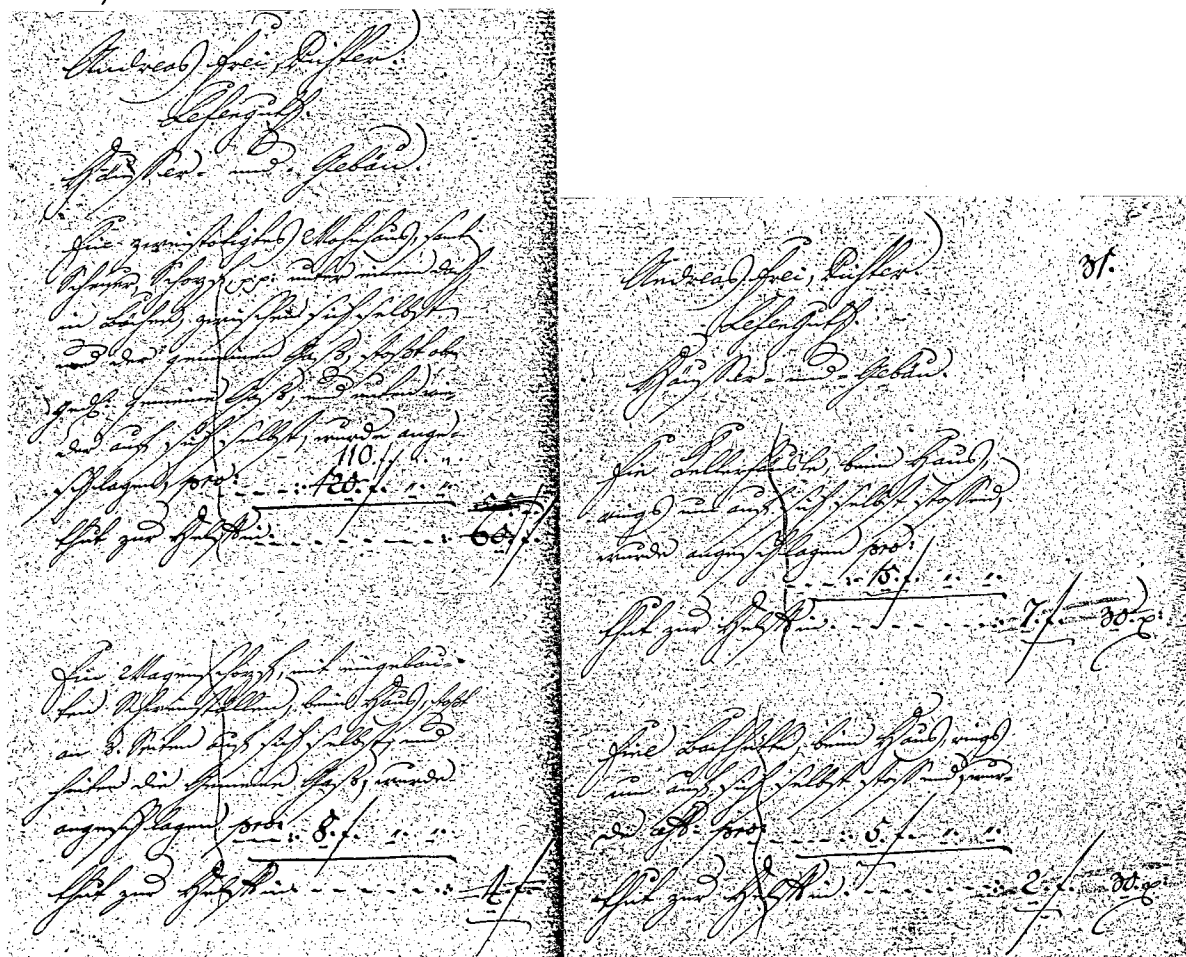 Andreas Frei, Richter.
Lehenguth.
Häusser- und Gebäu.
Ein zweistökigtes Wohnhaus, samt
Scheuer, Schopf pp. unter einem Dach
in Bächen, zwischen sich selbst
und der gemeinen Gass, stosst oben
gedl. gemeine Gass, und unten wie-
der auf sich selbst, wurde ange-
110.
schlagen, pro: 120. f. " "
thut zur Helfftin. 60. f.
Ein Wagenschopf, mit eingebau-
ten Schweinställen, beim Haus, stosst
an 3. Seiten auf sich selbst, und
hinten die Gemeine Gass, wurde
angeschlagen pro: 8. f. " "
thut zur Helfftin. 4. f.
31.
Andreas Frei, Richter.
Lehenguth.
Häusser- und Gebäu.
Ein Kellerhäusle, beim Haus,
rings um auf sich selbst stossend,
wurde angeschlagen pro:
15. f. " "
thut zur Helfftin. 7. f. 30. x.
Eine Bachhütte, beim Haus, rings
um auf sich selbst stossend, wur-
de pro: 5. f. " "
thut zur Helfftin. 2. f. 30. x.